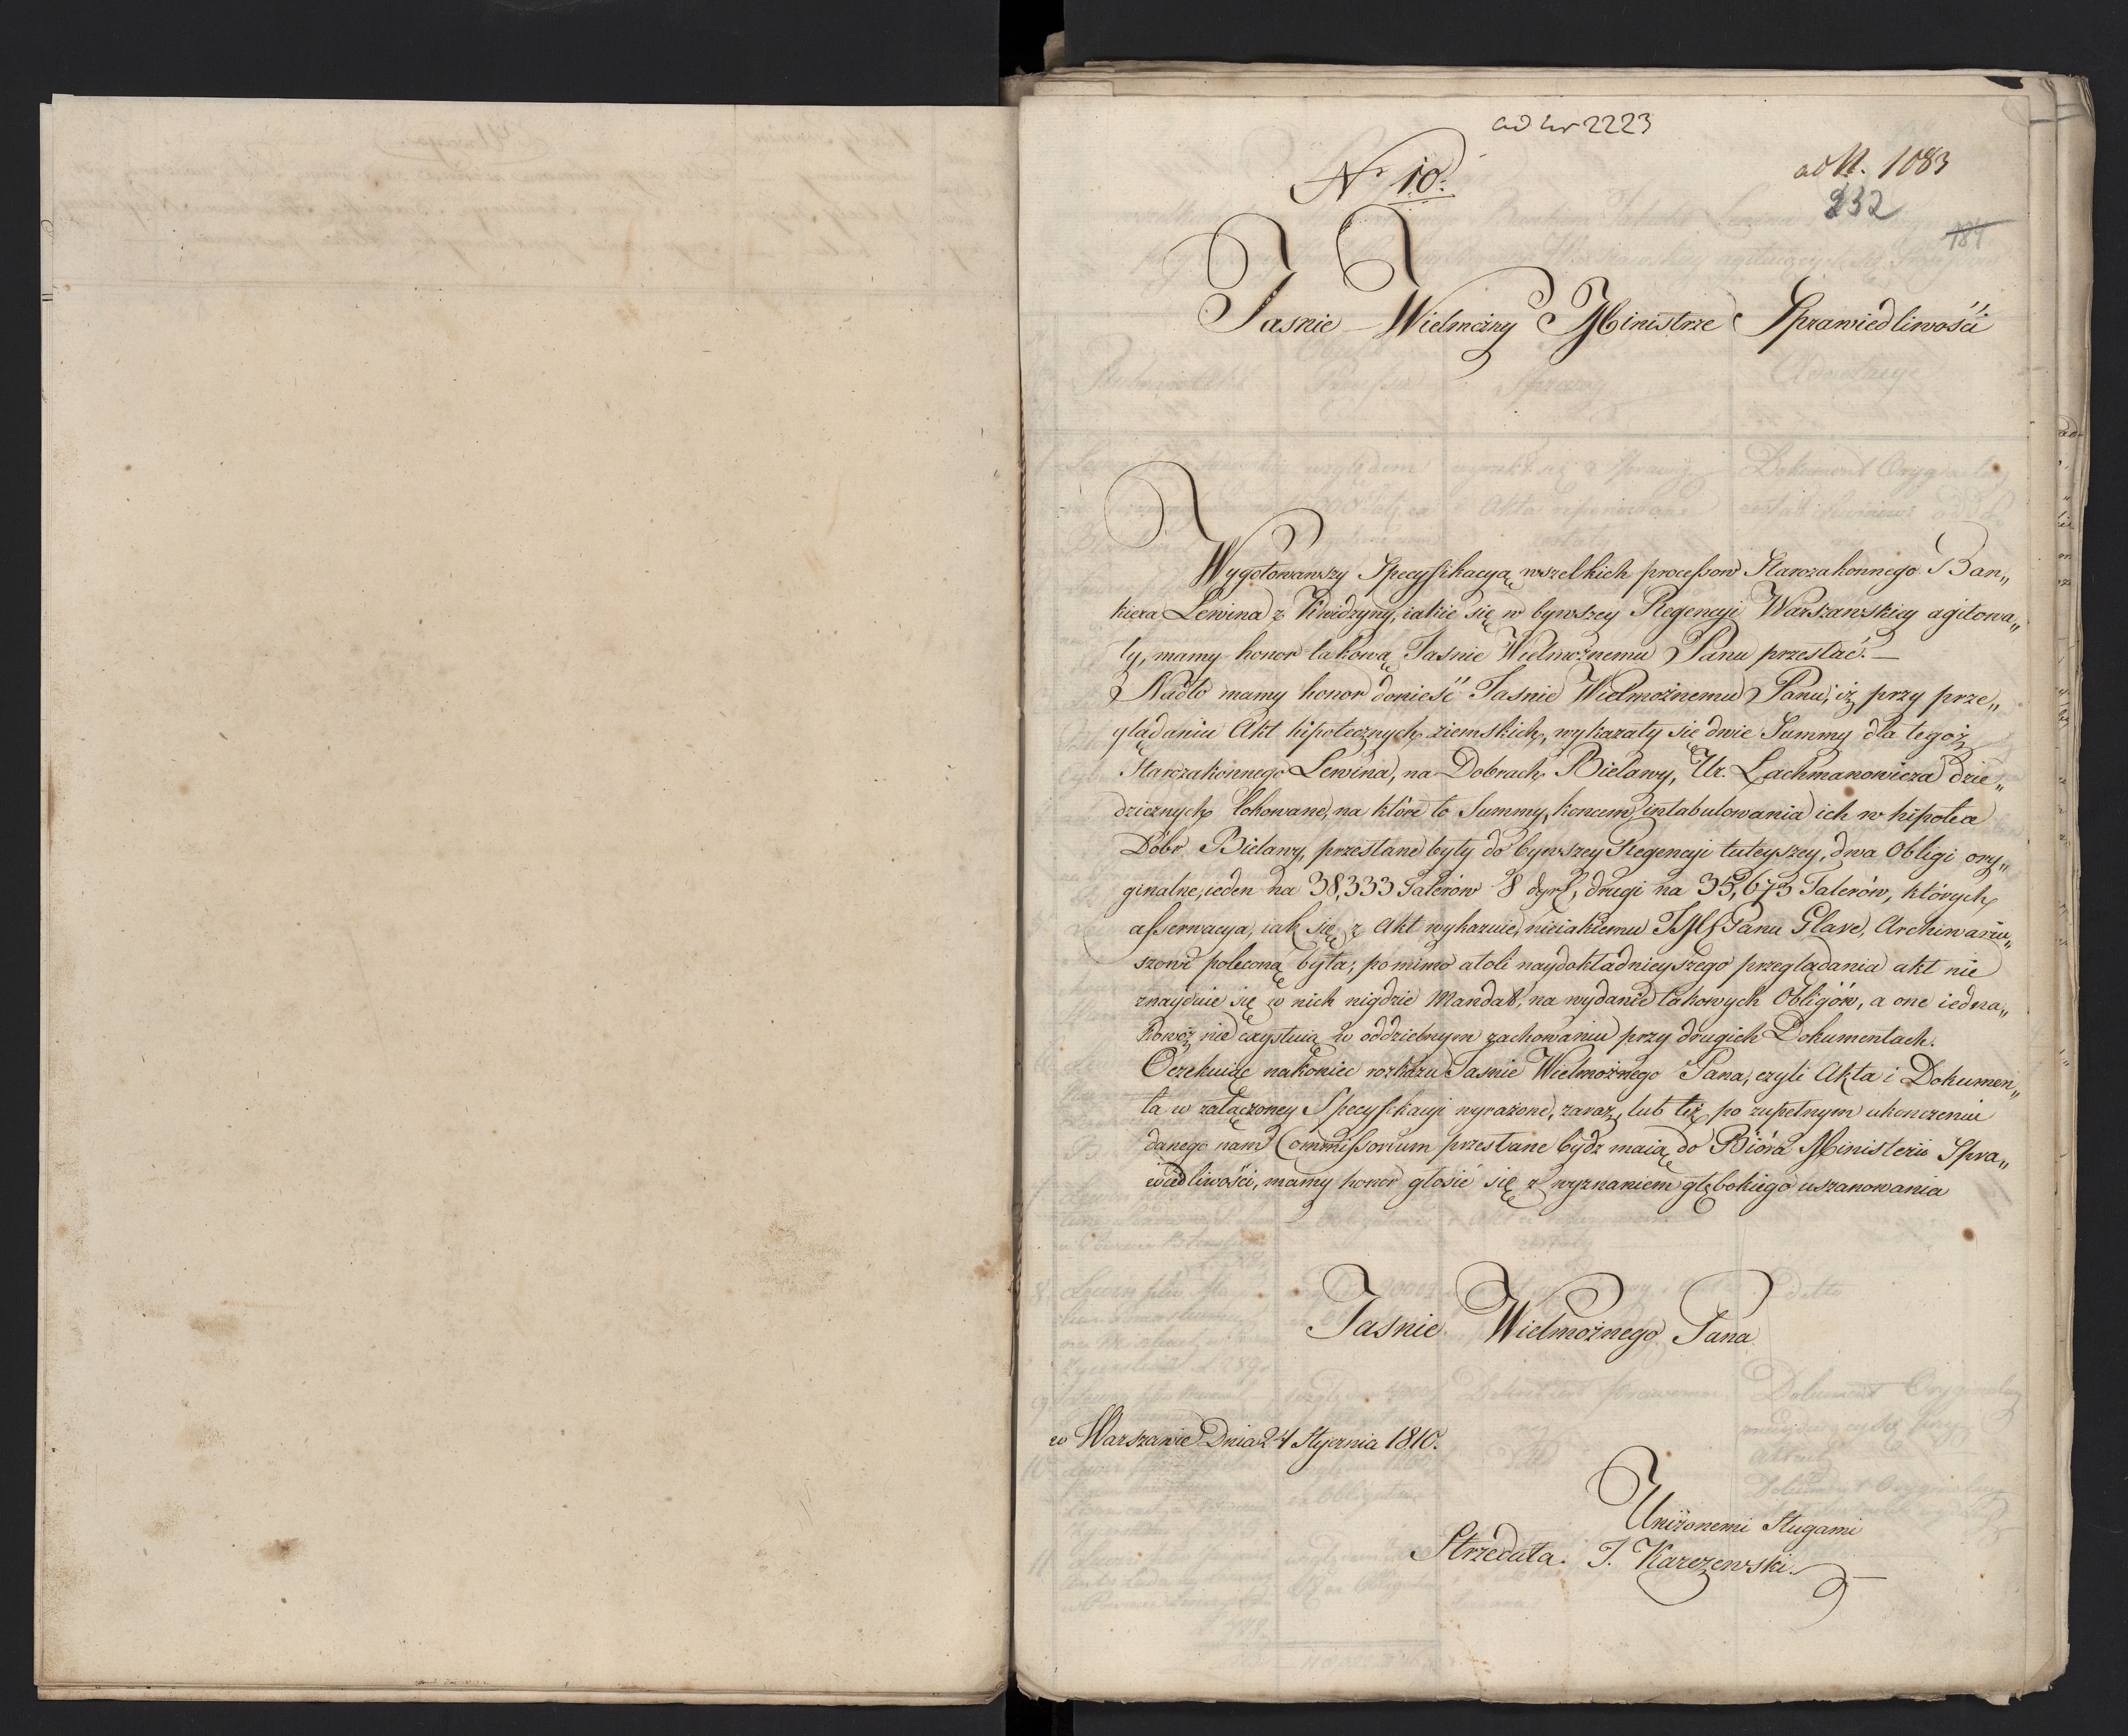 ad Nr 2223
ad N. 1083
Nr 10.
232
184
Jasnie Wielmożny Ministrze Sprawiedliwości
Wygotowawszy Specyfikacyą wszelkich processow Starozakonnego Ban„
kiera Lewina z Kwidzyny, iakie się w bywszey Regencyi Warszawskiey agitowa„
ły, mamy honor takową Jasnie Wielmożnemu Panu przesłać. —
Nadto mamy honor donieść Jasnie Wielmożnemu Panu, iż przy prze„
glądaniu Akt hipotecznych ziemskich, wykazały się dwie Summy dla tegoż
Starozakonnego Lewina, na Dobrach Bielawy, Ur. Lachmanowicza dzie„
dzicznych lokowane, na które to Summy, koncem intabulowania ich w hipotece
Dóbr Bielawy, przesłane były do bywszey Regencyi tuteyszey, dwa Obligi ory„
ginalne, ieden na 38,333 Talerów 8 dgrl, drugi na 35,673 Talerów, których
asserwacya, iak się z Akt wykazuie, nieiakiemu JMPanu Glave, Archiwariu„
szowi poleconą była; pomimo atoli naydokładnieyszego przeglądania akt nie
znayduie się w nich nigdzie Mandat, na wydanie takowych Obligów, a one iedna„
kowoż nie exystuią w oddzielnym zachowaniu przy drugich Dokumentach.
Oczekuiąc nakoniec rozkazu Jasnie Wielmożnego Pana, czyli Akta i Dokumen„
ta w załączoney Specyfikacyi wyrażone, zaraz, lub też po zupełnym ukonczeniu
danego nam Commissorium przesłane bydz maią do Bióra Ministerii Spra„
wiedliwości, mamy honor głosić się z wyznaniem głębokiego uszanowania
Jasnie Wielmożnego Pana
w Warszawie Dnia 24 Stycznia 1810.
Uniżonemi Sługami
Strzeduła. J. Karczewski.